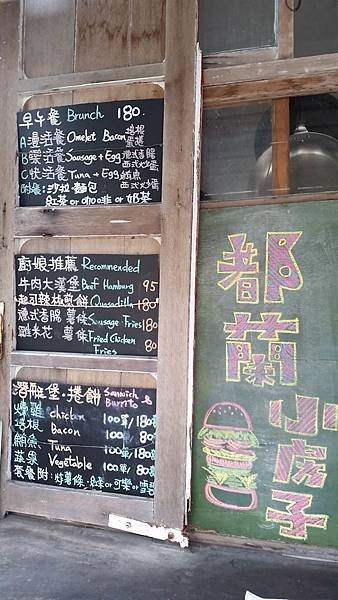 早午餐 Brunch 180.
A漫活餐 Omelet Bacon 培根蛋捲
B樂活餐 Sausage + Egg 德式香腸 西式炒蛋
C快活餐 Tuna + Egg 鮪魚 西式炒蛋
附餐：沙拉·麵包
紅茶 or 咖啡 or 奶茶
廚娘推薦 Recommended
牛肉大漢堡 Beef Hamburg 95
起司辣椒煎餅 Quesadilla 180
德式香腸 薯條 Sausage Fries 180
雞米花 薯條 Fried Chicken Fries 80
潛艇堡·捲餅 Sanwich & Burrito
燻雞 chicken 100單/180套
培根 Bacon 100 80
鮪魚 Tuna 100單/180套
蔬果 Vegetable 100單/80套
套餐附：炸薯條·紅茶or可樂or雪碧
都蘭小房子